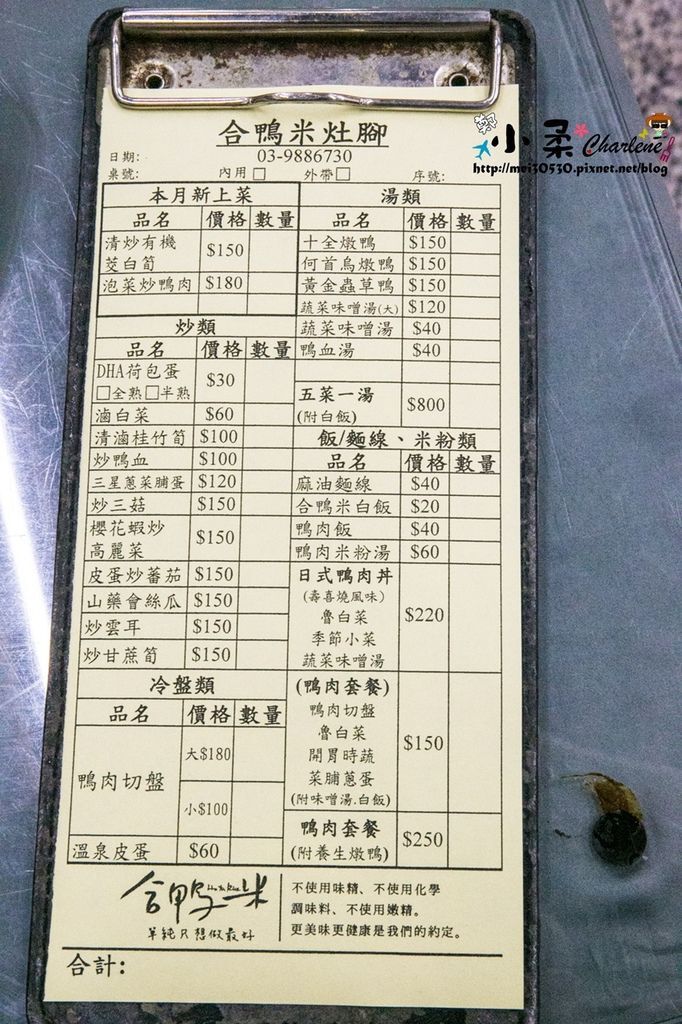 合鴨米灶腳
日期:
03-9886730
桌號: 內用□ 外帶□ 序號:
小柔 Charlene
http://mei30530.pixnet.net/blog
本月新上菜
品名 價格 數量
清炒有機
茭白筍 $150
泡菜炒鴨肉 $180
炒類
品名 價格 數量
DHA荷包蛋
□全熟□半熟 $30
滷白菜 $60
清滷桂竹筍 $100
炒鴨血 $100
三星蔥菜脯蛋 $120
炒三菇 $150
櫻花蝦炒
高麗菜 $150
皮蛋炒蕃茄 $150
山藥會絲瓜 $150
炒雲耳 $150
炒甘蔗筍 $150
冷盤類
品名 價格 數量
鴨肉切盤
大$180
小$100
溫泉皮蛋 $60
湯類
品名 價格 數量
十全燉鴨 $150
何首烏燉鴨 $150
黃金蟲草鴨 $150
蔬菜味噌湯(大) $120
蔬菜味噌湯 $40
鴨血湯 $40
五菜一湯
(附白飯) $800
飯/麵線、米粉類
品名 價格 數量
麻油麵線 $40
合鴨米白飯 $20
鴨肉飯 $40
鴨肉米粉湯 $60
日式鴨肉丼
(壽喜燒風味)
魯白菜
季節小菜
蔬菜味噌湯
$220
(鴨肉套餐)
鴨肉切盤
魯白菜
開胃時蔬
菜脯蔥蛋
(附味噌湯.白飯)
$150
鴨肉套餐
(附養生燉鴨) $250
合鴨米
單純只想做最好
不使用味精、不使用化學
調味料、不使用嫩精。
更美味更健康是我們的約定。
合計: